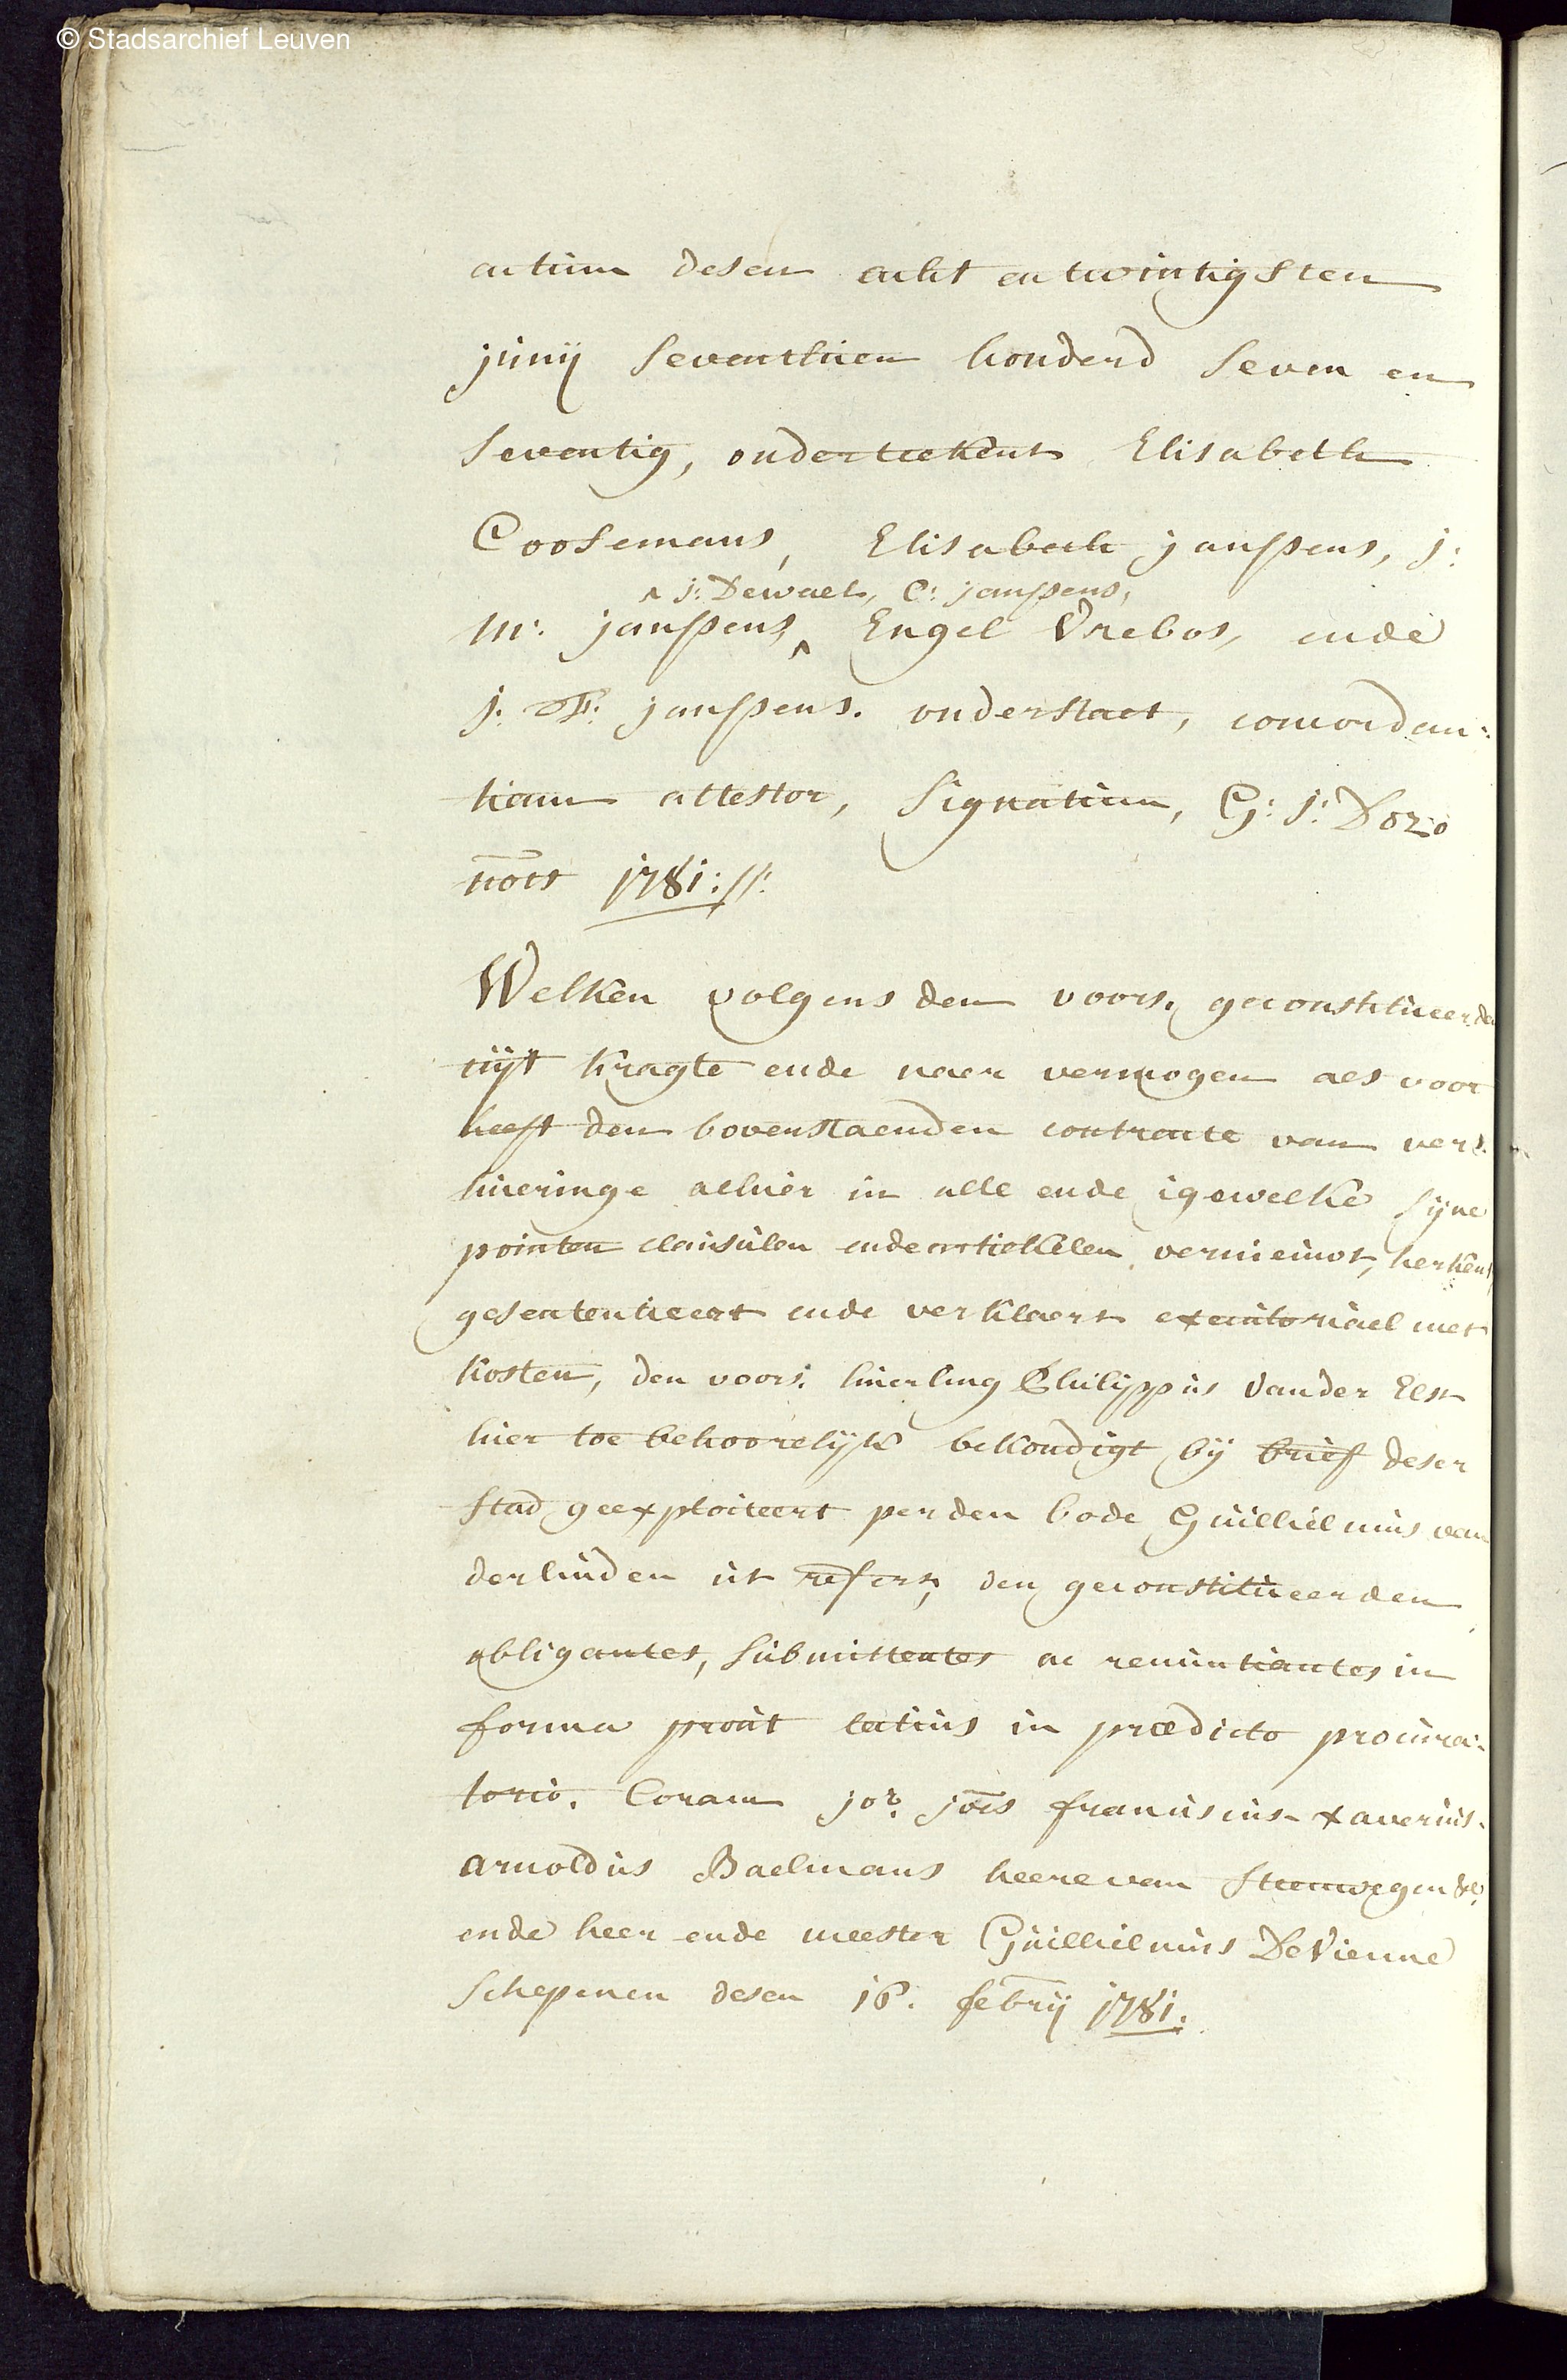 © Stadsarchief Leuven
actum desen acht en twintigsten
junij seventhien honderd seven en
seventig, ondertekent Elisabeth
Coosemans, Elisabeth janssens, j:
^ j: Dewael, C: janssens,
m: janssens, ^ Engel Vrebos, ende
j: F: janssens. onderstaet, concordan:
tiam attestor, signatum, G: j: Dozo
nots 1781://:
Welken volgens den voors. geconstitueerden
uijt kragte ende naer vermogen als voor
heeft den bovenstaenden contracte van ver:
hueringe alhier in alle ende igewelke sijne
pointen clausulen ende artickelen vernieuwt, herkent,
gesententieert ende verklaert executoriael met
kosten, den voors: huerling Philippus Vander Elst
hier toe behoorelijk bekondigt bij brief deser
stad geexploiteert per den bode Guillielmus van
derlinden ut refert, den geconstitueerden
obligantes, submittentes ac renuntiantes in
forma prout latius in prædicto procura:
torio. Coram jor. jois franciscus-xaverius-
arnoldus Baelmans heere van Steenwegen &c
ende heer ende meester Guillielmus DeVienne
schepenen desen 16. febrij 1781.